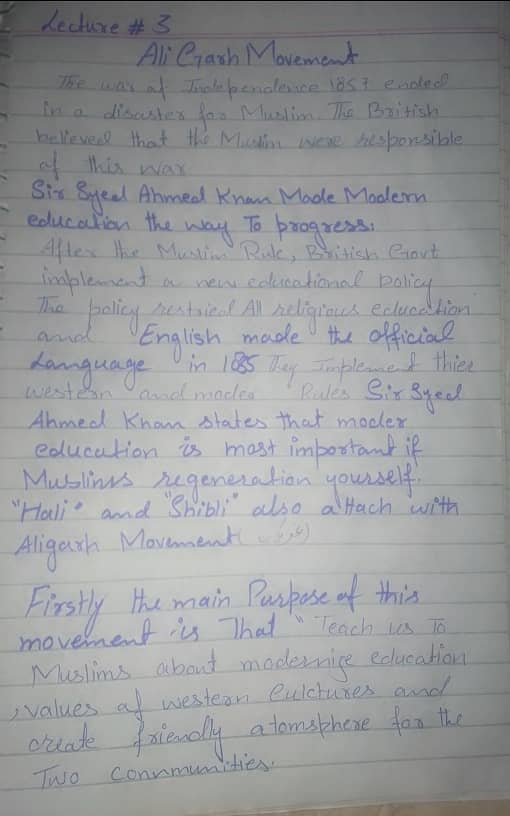 Lecture # 3
Ali Garh Movement
The war of Independence 1857 ended
in a disaster for Muslim. The British
believed that the Muslim were responsible
of this war
Sir Syed Ahmed Khan Made Modern
education the way To progress.
After the Muslim Rule, British Govt
implement a new educational policy
The policy restricd All religious education
and English made the official
Language in 1835 They Implement thier
western and moder Rules Sir Syed
Ahmed Khan states that moder
education is most important if
Muslims regeneration yourself.
"Hali" and "Shibli" also attach with
Aligarh Movement
Firstly the main Purpose of this
movement is That " Teach us To
Muslims about modernize education
, values of western Culctures and
create friendly atomsphere for the
Two communities.